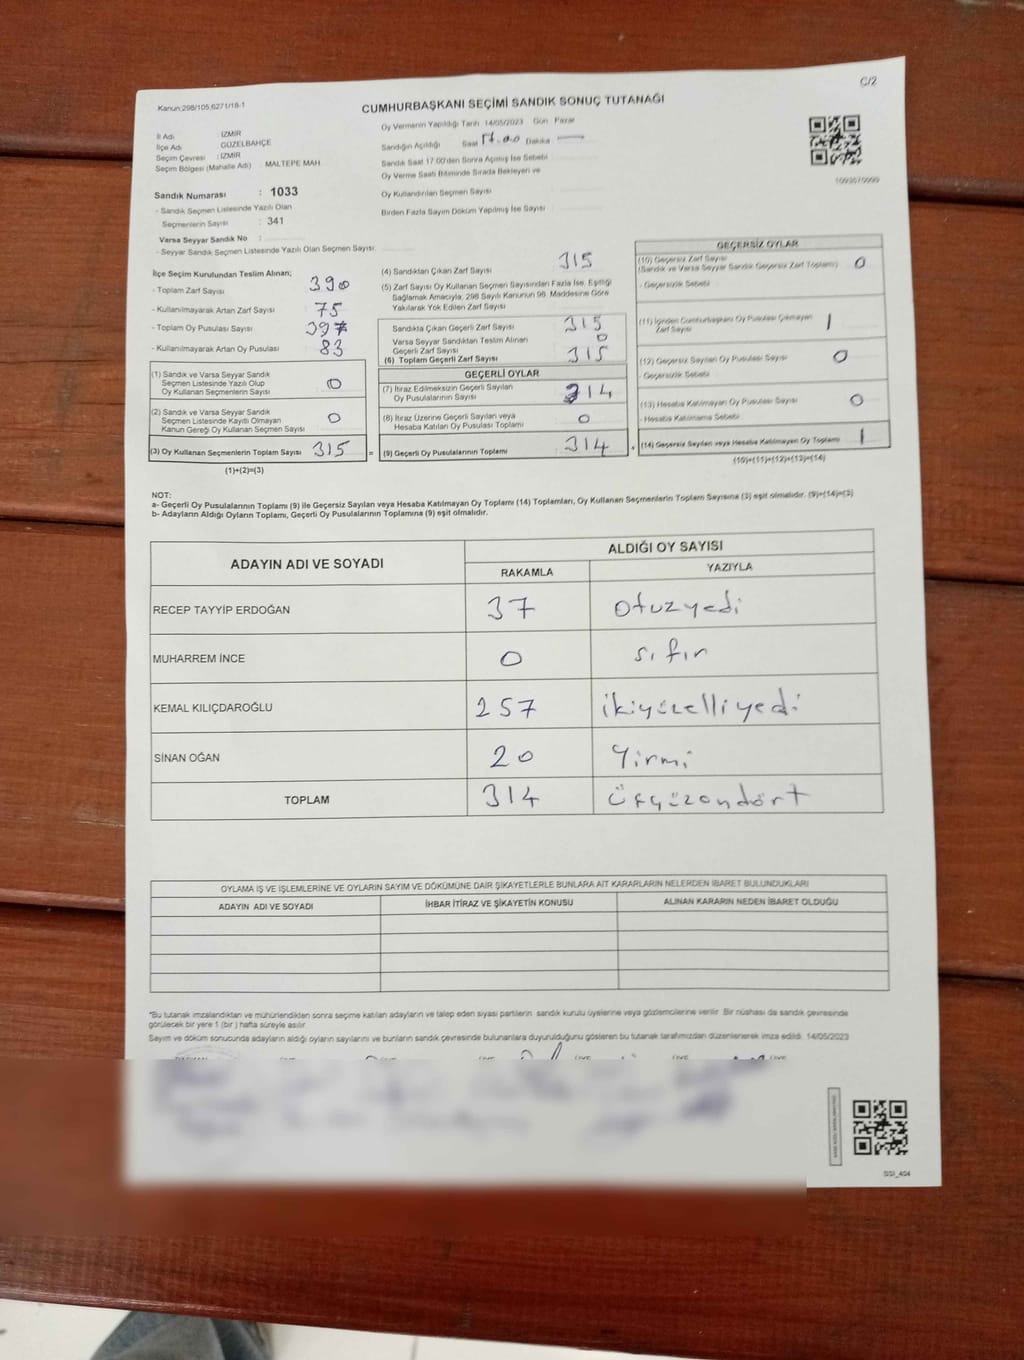 C/2
Kanun:298/105,6271/18-1
CUMHURBAŞKANI SEÇİMİ SANDIK SONUÇ TUTANAĞI
İl Adı : İZMİR
İlçe Adı : GÜZELBAHÇE
Seçim Çevresi : İZMİR
Seçim Bölgesi (Mahalle Adı) : MALTEPE MAH
Oy Vermenin Yapıldığı Tarih 14/05/2023 Gün Pazar
Sandığın Açıldığı Saat 17.00 Dakika —
Sandık Saat 17:00'den Sonra Açılmış İse Sebebi
Oy Verme Saati Bitiminde Sırada Bekleyen ve
Oy Kullandırılan Seçmen Sayısı
Birden Fazla Sayım Döküm Yapılmış İse Sayısı
Sandık Numarası : 1033
- Sandık Seçmen Listesinde Yazılı Olan
Seçmenlerin Sayısı : 341
Varsa Seyyar Sandık No :
- Seyyar Sandık Seçmen Listesinde Yazılı Olan Seçmen Sayısı:
İlçe Seçim Kurulundan Teslim Alınan;
- Toplam Zarf Sayısı 390
- Kullanılmayarak Artan Zarf Sayısı 75
- Toplam Oy Pusulası Sayısı 397
- Kullanılmayarak Artan Oy Pusulası 83
(1) Sandık ve Varsa Seyyar Sandık
Seçmen Listesinde Yazılı Olup
Oy Kullanan Seçmenlerin Sayısı 0
(2) Sandık ve Varsa Seyyar Sandık
Seçmen Listesinde Kayıtlı Olmayan
Kanun Gereği Oy Kullanan Seçmen Sayısı 0
(3) Oy Kullanan Seçmenlerin Toplam Sayısı 315 =
(1)+(2)=(3)
(4) Sandıktan Çıkan Zarf Sayısı 315
(5) Zarf Sayısı Oy Kullanan Seçmen Sayısından Fazla İse, Eşitliği
Sağlamak Amacıyla, 298 Sayılı Kanunun 98. Maddesine Göre
Yakılarak Yok Edilen Zarf Sayısı
Sandıkta Çıkan Geçerli Zarf Sayısı 315
Varsa Seyyar Sandıktan Teslim Alınan
Geçerli Zarf Sayısı 0
(6) Toplam Geçerli Zarf Sayısı 315
GEÇERLİ OYLAR
(7) İtiraz Edilmeksizin Geçerli Sayılan
Oy Pusulalarının Sayısı 314
(8) İtiraz Üzerine Geçerli Sayılan veya
Hesaba Katılan Oy Pusulası Toplamı 0
(9) Geçerli Oy Pusulalarının Toplamı 314 +
GEÇERSİZ OYLAR
(10) Geçersiz Zarf Sayısı
(Sandık ve Varsa Seyyar Sandık Geçersiz Zarf Toplamı) 0
- Geçersizlik Sebebi
(11) İçinden Cumhurbaşkanı Oy Pusulası Çıkmayan
Zarf Sayısı 1
(12) Geçersiz Sayılan Oy Pusulası Sayısı 0
- Geçersizlik Sebebi
(13) Hesaba Katılmayan Oy Pusulası Sayısı 0
- Hesaba Katılmama Sebebi
(14) Geçersiz Sayılan veya Hesaba Katılmayan Oy Toplamı 1
(10)+(11)+(12)+(13)=(14)
NOT:
a- Geçerli Oy Pusulalarının Toplamı (9) ile Geçersiz Sayılan veya Hesaba Katılmayan Oy Toplamı (14) Toplamları, Oy Kullanan Seçmenlerin Toplam Sayısına (3) eşit olmalıdır. (9)+(14)=(3)
b- Adayların Aldığı Oyların Toplamı, Geçerli Oy Pusulalarının Toplamına (9) eşit olmalıdır.
ADAYIN ADI VE SOYADI ALDIĞI OY SAYISI
RAKAMLA YAZIYLA
RECEP TAYYİP ERDOĞAN 37 otuzyedi
MUHARREM İNCE 0 sıfır
KEMAL KILIÇDAROĞLU 257 ikiyüzelliyedi
SİNAN OĞAN 20 Yirmi
TOPLAM 314 üçyüzondört
OYLAMA İŞ VE İŞLEMLERİNE VE OYLARIN SAYIM VE DÖKÜMÜNE DAİR ŞİKAYETLERLE BUNLARA AİT KARARLARIN NELERDEN İBARET BULUNDUKLARI
ADAYIN ADI VE SOYADI İHBAR İTİRAZ VE ŞİKAYETİN KONUSU ALINAN KARARIN NEDEN İBARET OLDUĞU
*Bu tutanak imzalandıktan ve mühürlendikten sonra seçime katılan adayların ve talep eden siyasi partilerin sandık kurulu üyelerine veya gözlemcilerine verilir. Bir nüshası da sandık çevresinde
görülecek bir yere 1 (bir ) hafta süreyle asılır.
Sayım ve döküm sonucunda adayların aldığı oyların sayılarını ve bunların sandık çevresinde bulunanlara duyurulduğunu gösteren bu tutanak tarafımızdan düzenlenerek imza edildi. 14/05/2023
SSI_404